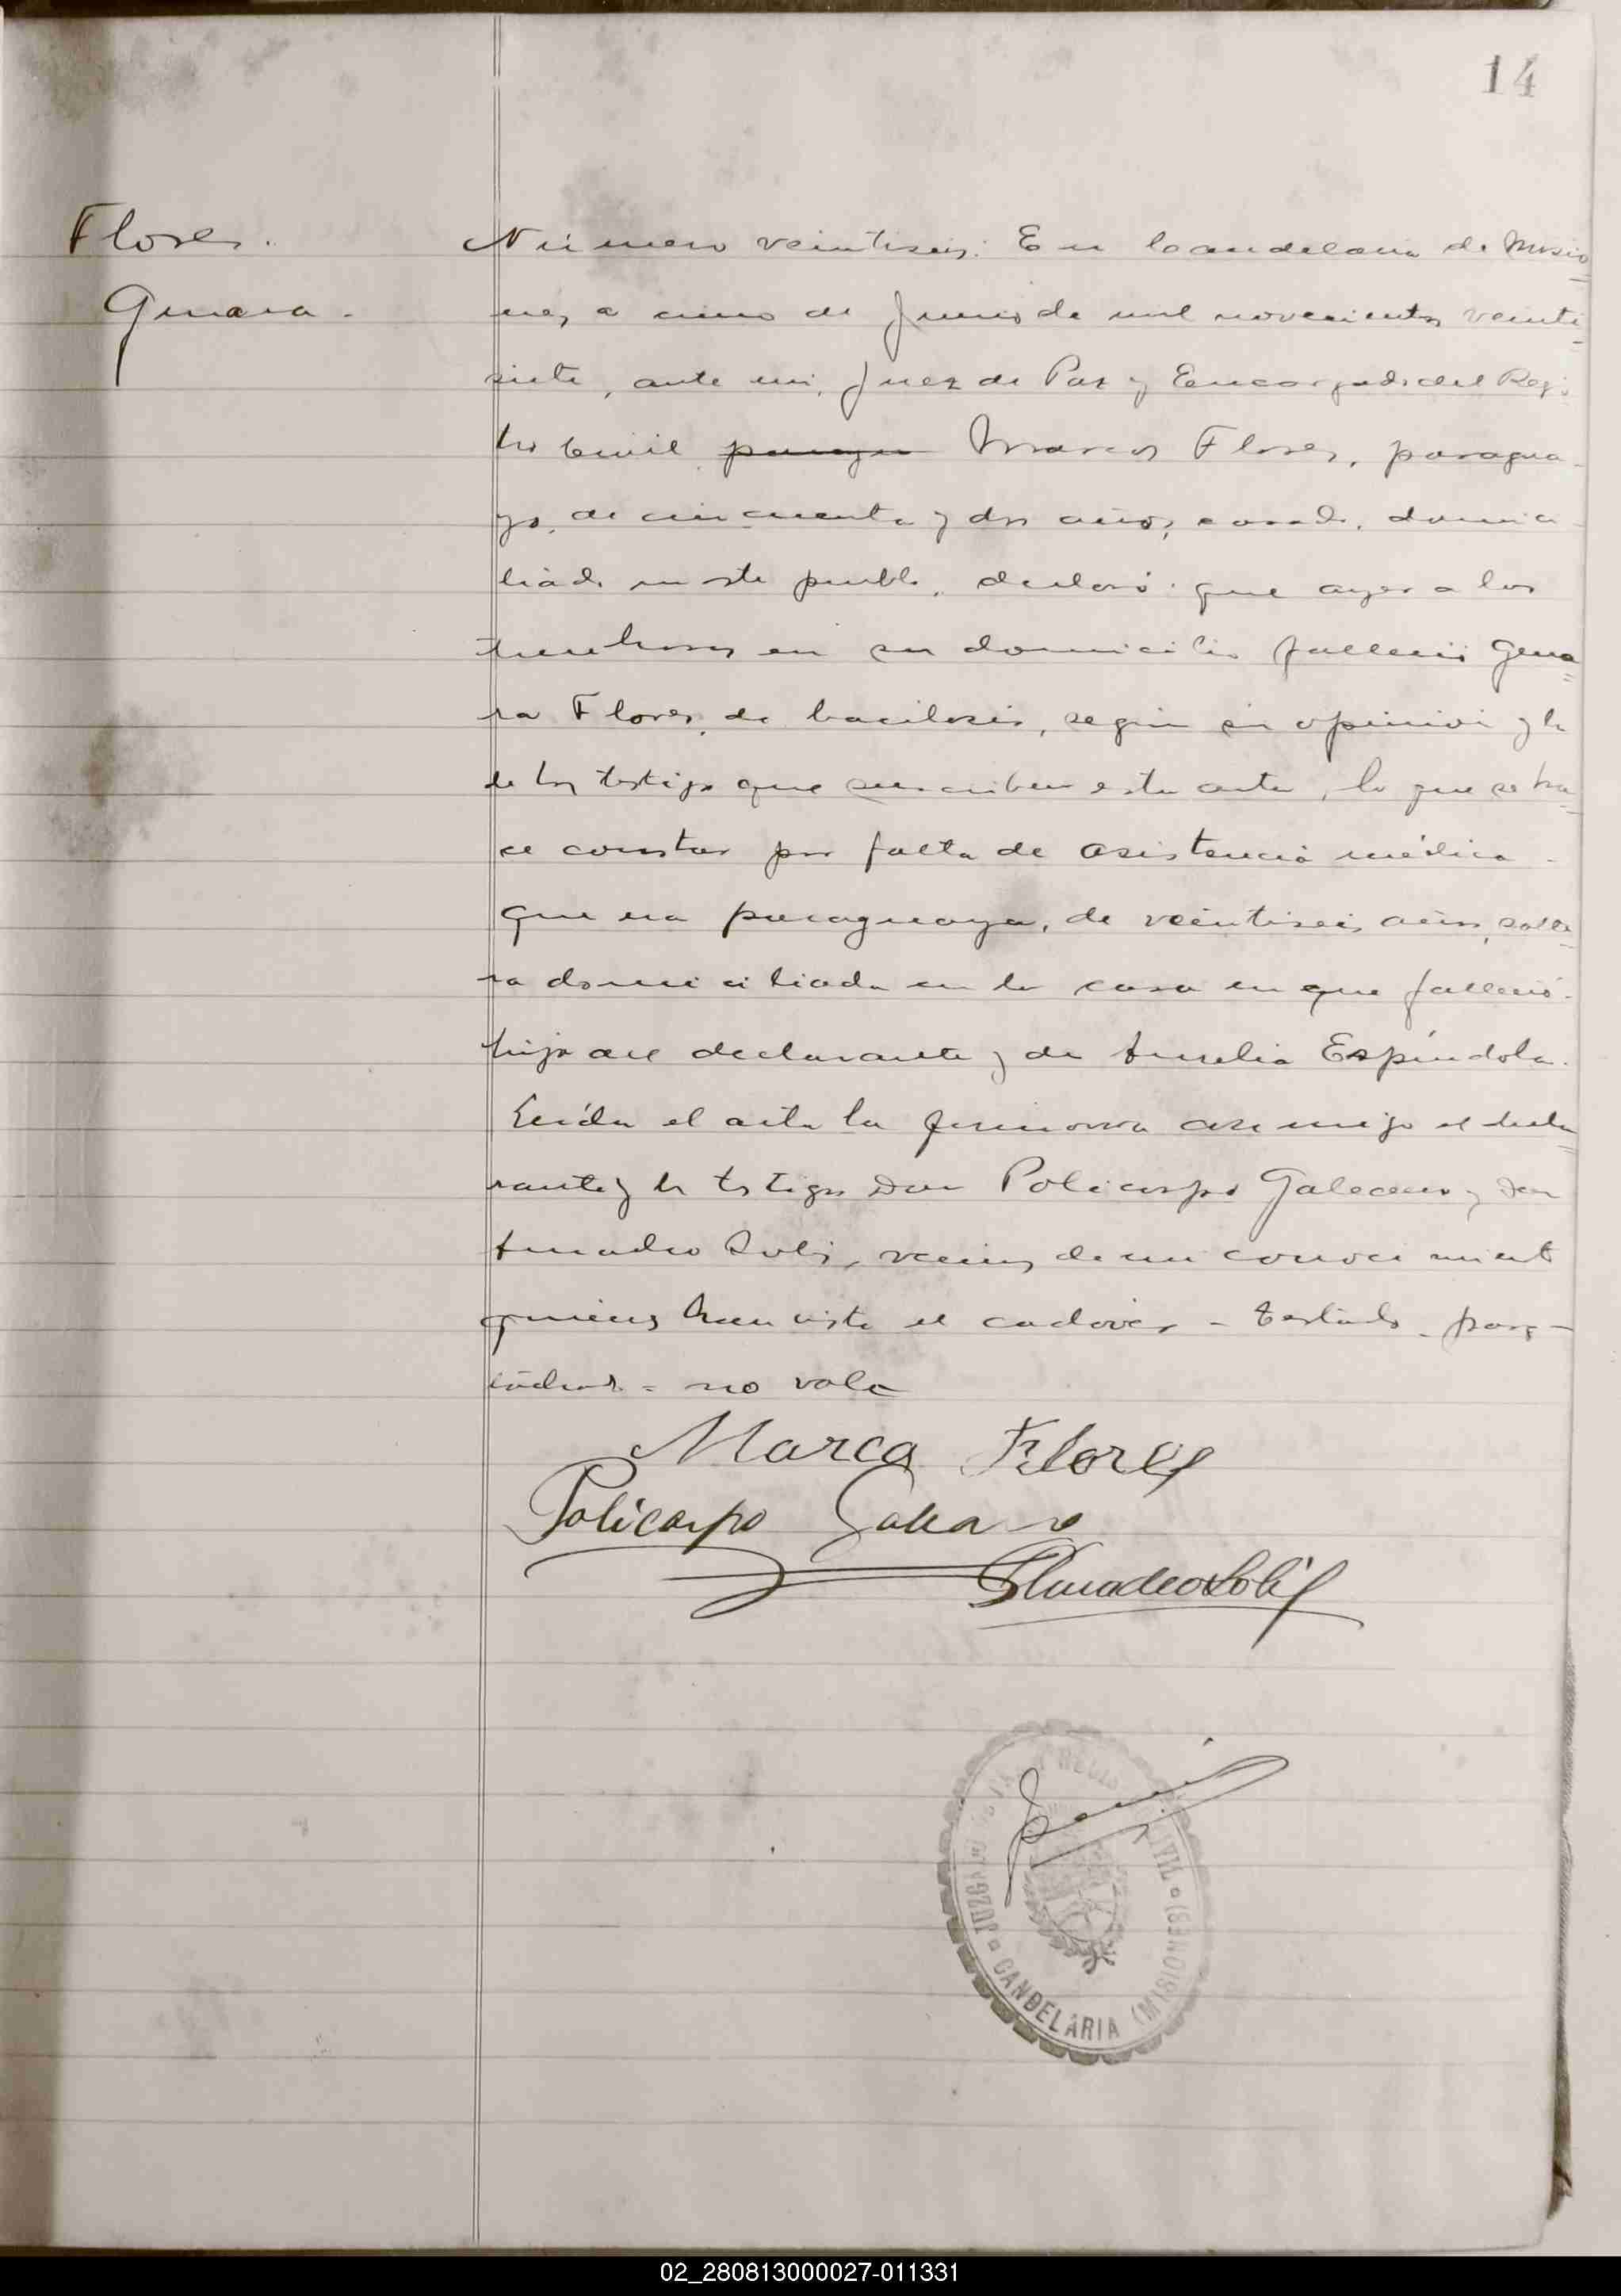 14
Flores.
Genara.
Número veintiseis: En Candelaria de Misio-
nes, a cinco de Junio de mil novecientos veinti-
siete, ante mi, Juez de Paz y Encargado del Regis-
tro Civil Marcos Flores, paragua-
yo, de cincuenta y dos años, casado, domici-
liado en este pueblo, declaró: que ayer a las
horas en su domicilio falleció Gena-
ra Flores, de bacilosis, según su opinión y la
de los testigos que suscriben esta acta, lo que se ha-
ce constar por falta de asistencia médica -
Que era paraguaya, de veintiseis años, solte-
ra domiciliada en la casa en que falleció.
hija del declarante y de Aurelia Espíndola.
Leída el acta la firmaron conmigo el decla-
rante y los testigos Don Policarpo Galeano y Don
Amadeo Solis, vecinos de mi conocimiento
quienes han visto el cadáver - Testado -
- no vale
Marco Flores
Policarpo Galeano
Amadeo Solis
JUZGADO DE PAZ Y REGISTRO CIVIL
CANDELARIA (MISIONES)
02_280813000027-011331